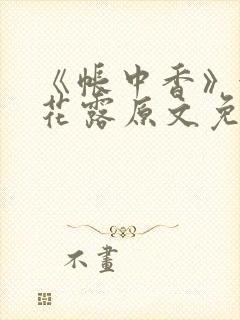 《帐中香》
花露原文免
不畫